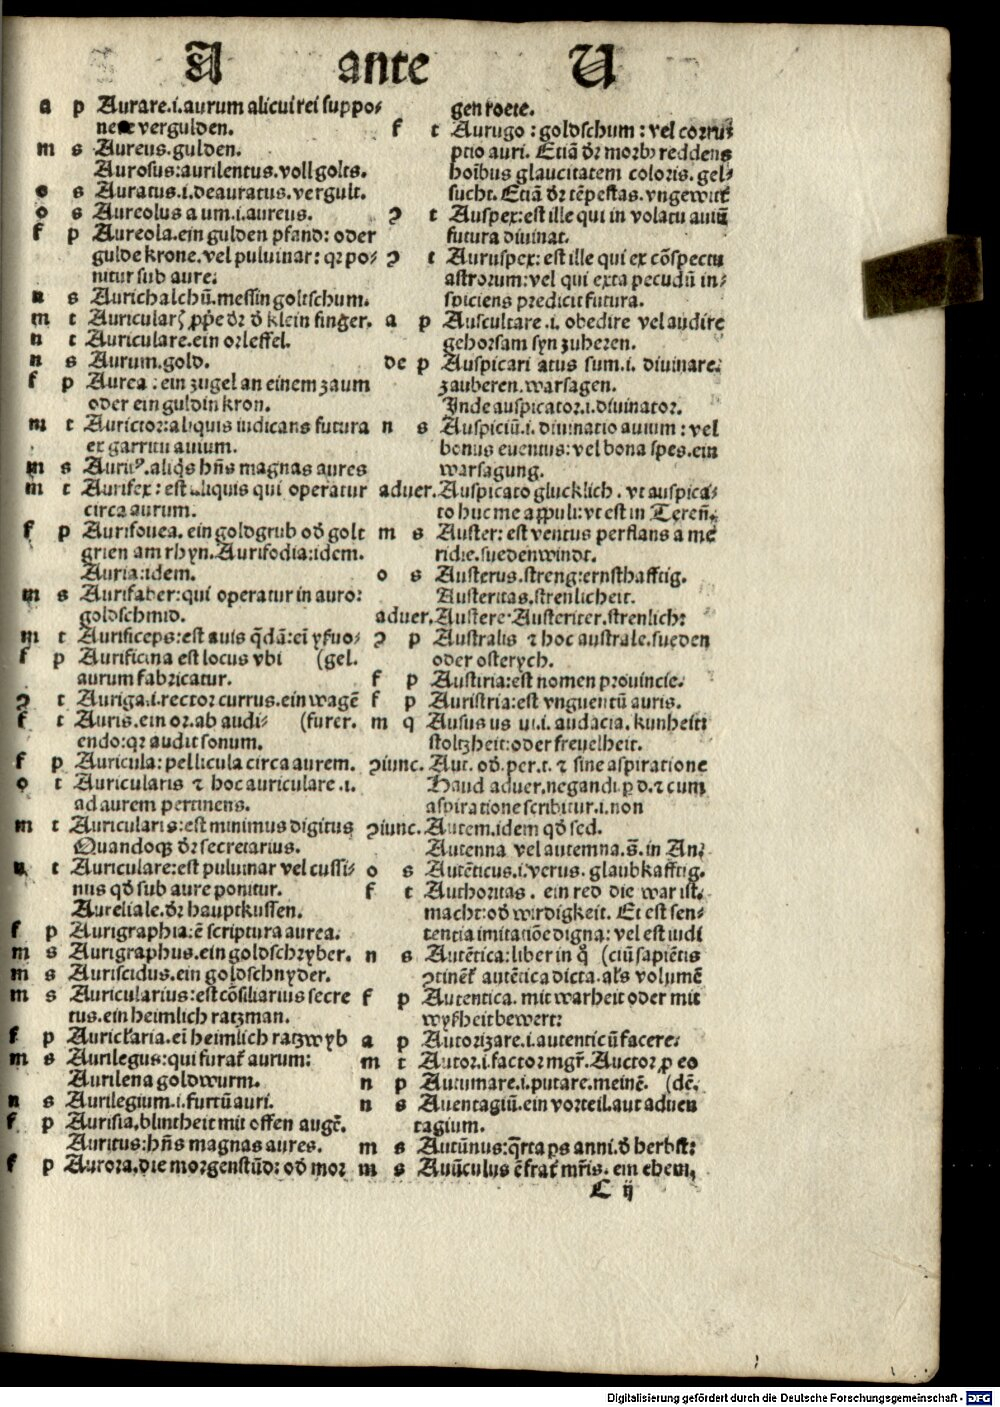 A ante U
a p Aurare.i.aurum alicui rei suppo⸗
nere vergulden.
m s Aureus.gulden.
Aurosus:aurilentus.voll golts.
o s Auratus.i.deauratus.vergult.
o s Aureolus a um.i.aureus.
f p Aureola.ein gulden pfand: oder
gulde krone.vel puluinar: qz po⸗
nitur sub aure.
n s Aurichalchū.messin goltschum.
m t Auricular̃ ꝓp̄e dr̄ d̓ klein finger.
n t Auriculare.ein orleffel.
n s Aurum.gold.
f p Aurea: ein zugel an einem zaum
oder ein guldin kron.
m t Aurictor:aliquis iudicans futura
ex garritu auium.
m s Auritꝰ.aliq̄s hn̄s magnas aures
m t Aurifex: est aliquis qui operatur
circa aurum.
f p Aurifouea. ein goldgrub od̓ golt
grien am rhyn.Aurifodia:idem.
Auria:idem.
m s Aurifaber:qui operatur in auro:
goldschmid.
m t Aurificeps:est auis q̄dā:eī yſuo⸗
f p Aurificina est locus vbi (gel.
aurum fabricatur.
ꝯ t Auriga.i.rector currus.ein wagē
f t Auris.ein or.ab audi⸗ (furer.
endo:qz audit sonum.
f p Auricula: pellicula circa aurem.
o t Auricularis ⁊ hoc auriculare .i.
ad aurem pertinens.
m t Auricularis:est minimus digitus
Quandoqꝫ dr̄ secretarius.
n t Auriculare:est puluinar vel cussi⸗
nus qd̓ sub aure ponitur.
Aureliale.dr̄ hauptkussen.
f p Aurigraphia:ē scriptura aurea.
m s Aurigraphus.ein goldschryber.
m s Auriscidus.ein goldschnyder.
m s Auricularius:est cōsiliarius secre
tus.ein heimlich ratzman.
f p Auriclaria.eī heimlich ratzwyb
m s Aurilegus:qui furat̄ aurum:
Aurilena goldwurm.
n s Aurilegium.i.furtū auri.
f p Aurisia.blintheit mit offen augē.
Auritus:hn̄s magnas aures.
f p Aurora.die morgenstūd: od̓ mor
gen roete.
f t Aurugo: goldschum: vel corru⸗
ptio auri. Etiā dr̄ morbꝰ reddens
hoībus glaucitatem coloris. gel⸗
sucht. Etiā dr̄ tēpestas. vngewitt̄
ꝯ t Auspex:est ille qui in volatu auiū
futura diuinat.
ꝯ t Auruspex: est ille qui ex cōspectu
astrorum:vel qui exta pecudū in⸗
spiciens predicit futura.
a p Auscultare .i. obedire vel audire
gehorsam syn zuheren.
de p Auspicari atus sum.i. diuinare.
zauberen.warsagen.
Inde auspicator.i.diuinator.
n s Auspiciū.i. diuinatio auium: vel
bonus euentus: vel bona spes.ein
warsagung.
aduer. Auspicato glucklich. vt auspica⸗
to huc me appuli: vt est in Tereñ.
m s Auster: est ventus perflans a me
ridie.suedenwindt.
o s Austerus.streng:ernsthafftig.
Austeritas.strenlicheit.
aduer. Austere Austeriter.strenlich:
ꝯ p Australis ⁊ hoc australe.sueden
oder osterych.
f p Austria:est nomen prouincie.
f p Auristria:est vnguentū auris.
m q Ausus us ui.i. audacia. kunheit:
stoltzheit:oder freuelheit.
ꝯiunc. Aut. od̓. per.t. ⁊ sine aspiratione
Haud aduer.negandi.ꝑ d.⁊ cum
aspiratione scribitur.i.non
ꝯiunc. Autem.idem qd̓ sed.
Autenna vel autemna.s̄. in An⸗
o s Autēticus.i.verus. glaubkafftig.
f t Authoritas. ein red die war ist.
macht:od̓ wirdigkeit. Et est sen⸗
tentia imitatiōe digna: vel est iudi
n s Autētica:liber in q̊ (ciū sapiētis
ꝯtinēt̄ autētica dicta. als volumē
f p Autentica. mit warheit oder mit
wyßheit bewert:
a p Autorizare.i.autenticū facere.
m t Autor.i.factor mgr̄. Auctor ꝓ eo
n p Autumare.i.putare.meinē. (dē.
n s Auentagiū.ein vorteil.aut aduen
tagium.
m s Autūnus:q̄rta ps anni.d̓ herbst:
m s Auūculus ē frat̄ mr̄is. ein ehem.
C ij
Digitalisierung gefördert durch die Deutsche Forschungsgemeinschaft - DFG